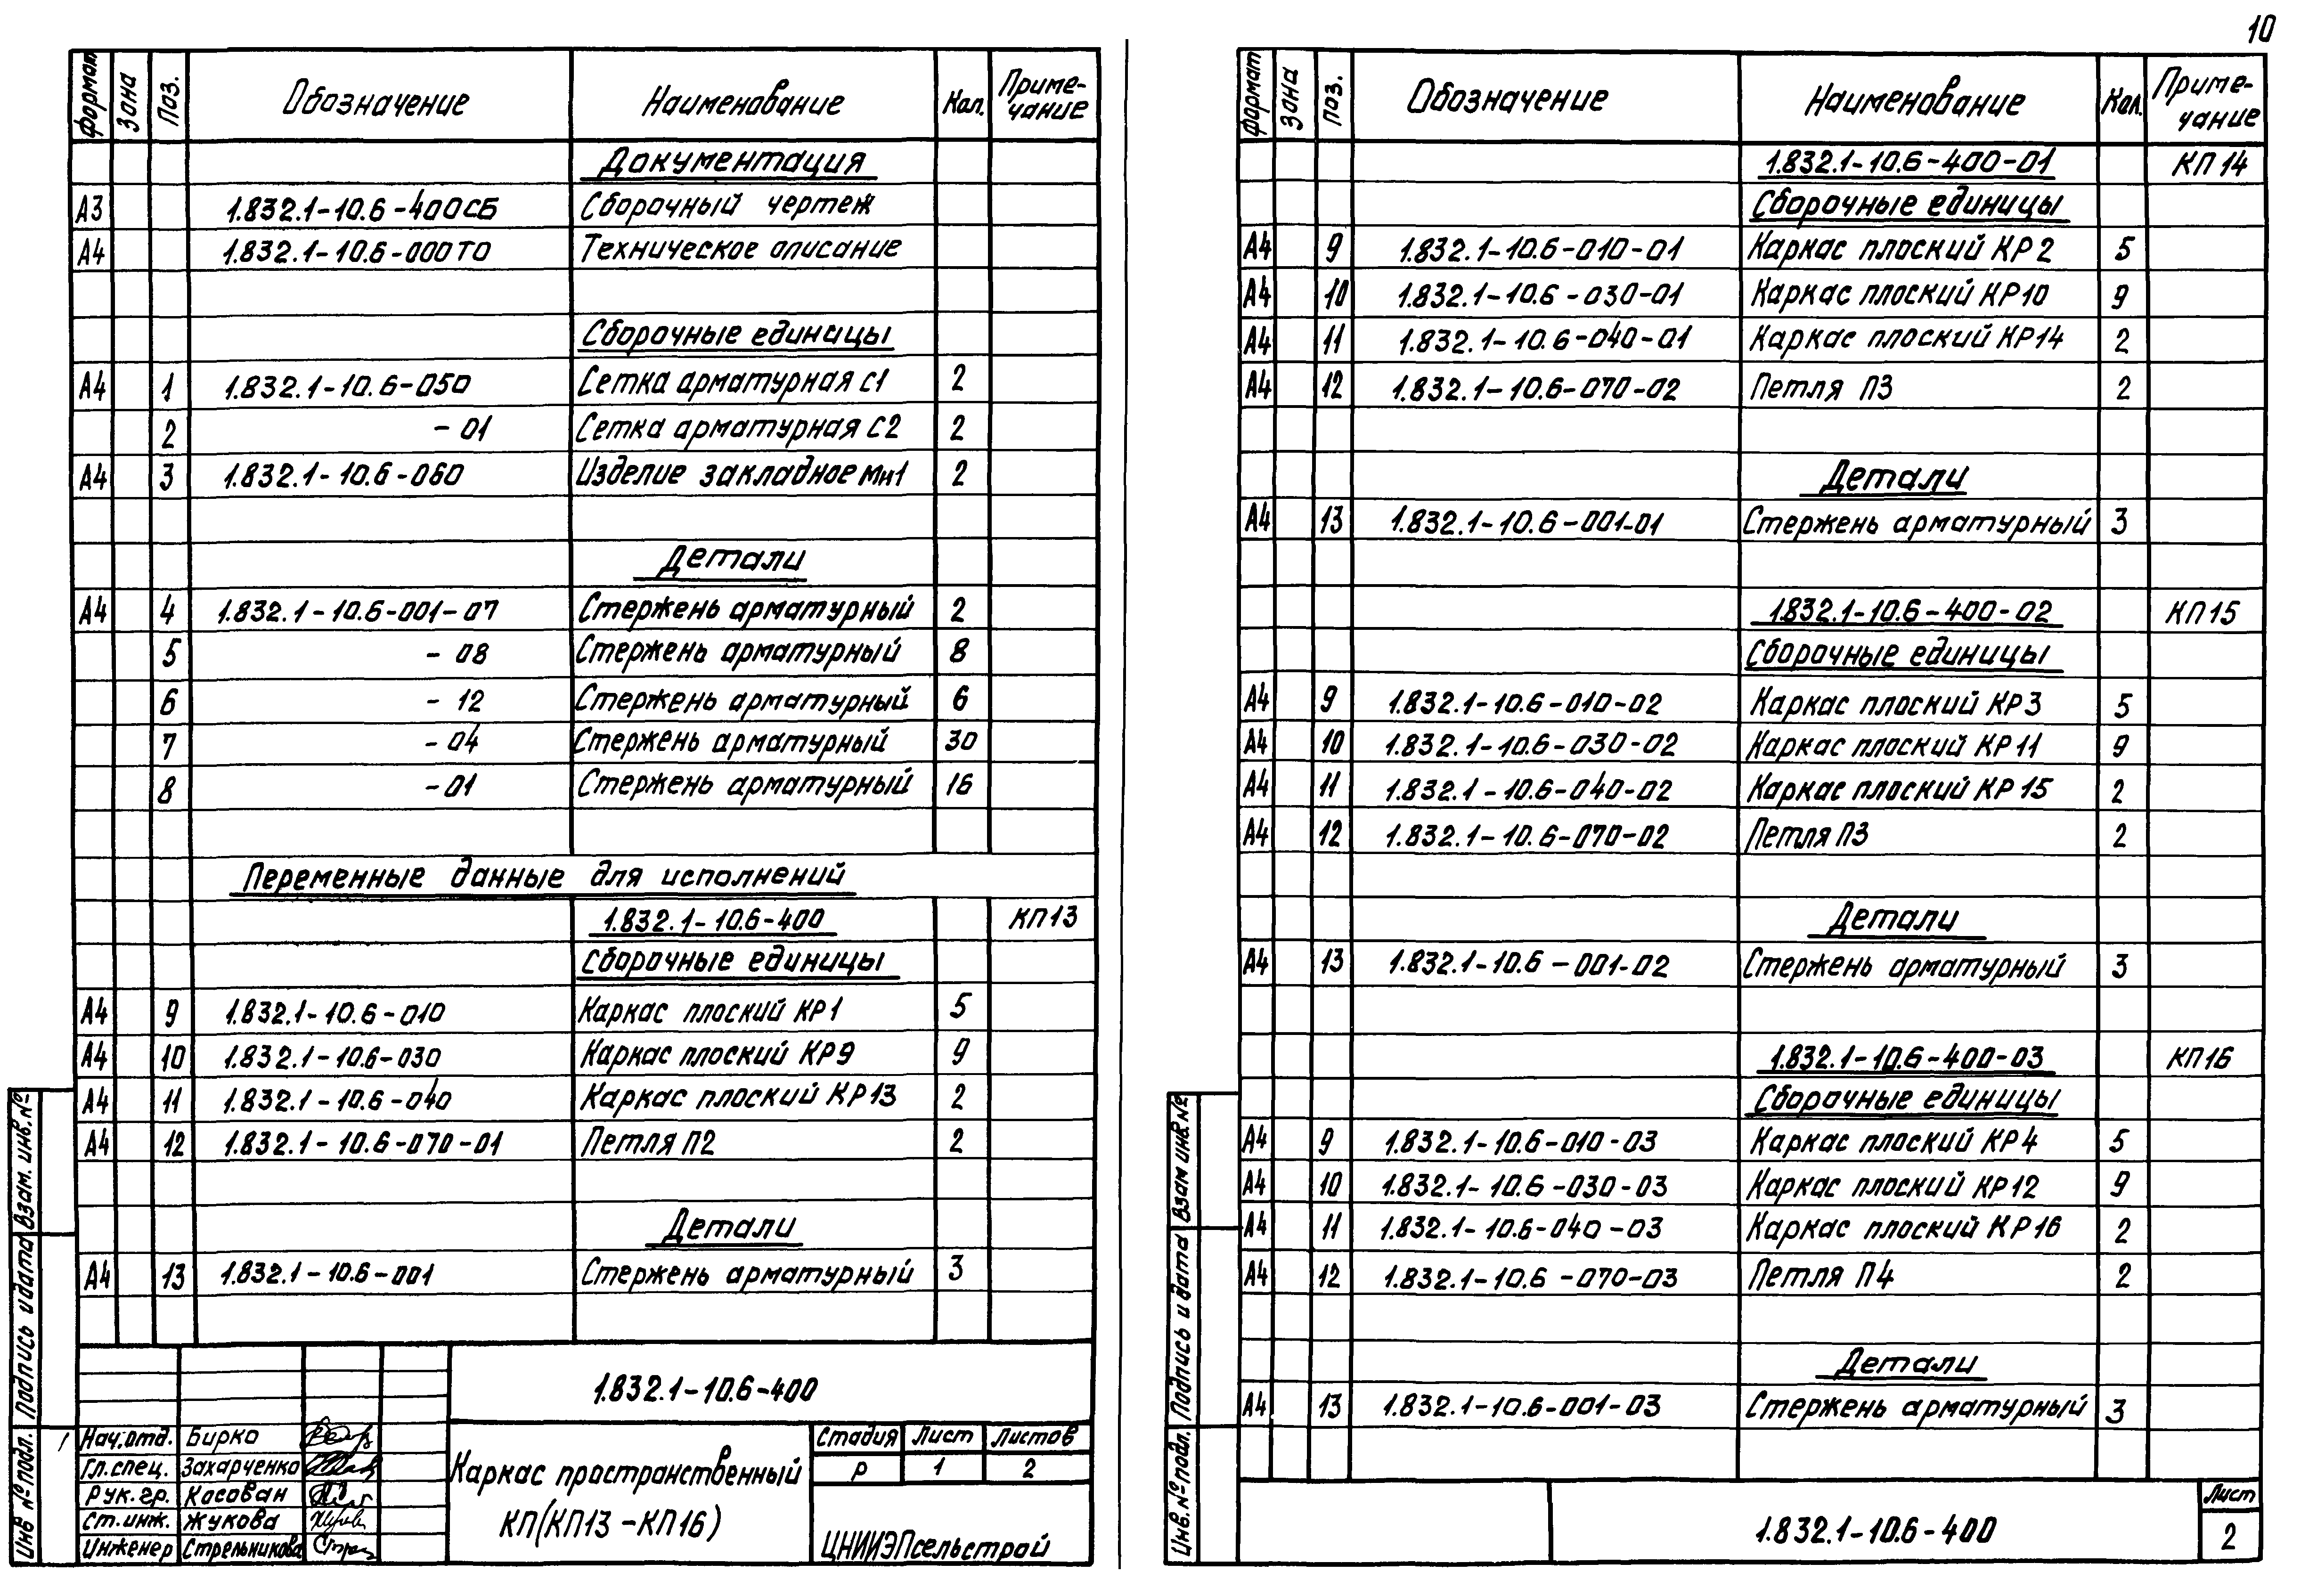 10
Формат Зона Поз. Обозначение Наименование Кол. Приме-
чание
Документация
А3 1.832.1-10.6-400СБ Сборочный чертеж
А4 1.832.1-10.6-000ТО Техническое описание
Сборочные единицы
А4 1 1.832.1-10.6-050 Сетка арматурная С1 2
2 -01 Сетка арматурная С2 2
А4 3 1.832.1-10.6-060 Изделие закладное Мн1 2
Детали
А4 4 1.832.1-10.6-001-07 Стержень арматурный 2
5 -08 Стержень арматурный 8
6 -12 Стержень арматурный 6
7 -04 Стержень арматурный 30
8 -01 Стержень арматурный 16
Переменные данные для исполнений
1.832.1-10.6-400 КП13
Сборочные единицы
А4 9 1.832.1-10.6-010 Каркас плоский КР1 5
А4 10 1.832.1-10.6-030 Каркас плоский КР9 9
А4 11 1.832.1-10.6-040 Каркас плоский КР13 2
А4 12 1.832.1-10.6-070-01 Петля П2 2
Детали
А4 13 1.832.1-10.6-001 Стержень арматурный 3
1.832.1-10.6-400
Нач.отд. Бирко
Гл.спец. Захарченко
Рук.гр. Косован
Ст.инж. Жукова
Инженер Стрельникова
Каркас пространственный
КП(КП13-КП16)
Стадия Лист Листов
Р 1 2
ЦНИИЭПсельстрой
Инв № подл. Подпись и дата Взам. инв. №
Формат Зона Поз. Обозначение Наименование Кол. Приме-
чание
1.832.1-10.6-400-01 КП14
Сборочные единицы
А4 9 1.832.1-10.6-010-01 Каркас плоский КР2 5
А4 10 1.832.1-10.6-030-01 Каркас плоский КР10 9
А4 11 1.832.1-10.6-040-01 Каркас плоский КР14 2
А4 12 1.832.1-10.6-070-02 Петля П3 2
Детали
А4 13 1.832.1-10.6-001-01 Стержень арматурный 3
1.832.1-10.6-400-02 КП15
Сборочные единицы
А4 9 1.832.1-10.6-010-02 Каркас плоский КР3 5
А4 10 1.832.1-10.6-030-02 Каркас плоский КР11 9
А4 11 1.832.1-10.6-040-02 Каркас плоский КР15 2
А4 12 1.832.1-10.6-070-02 Петля П3 2
Детали
А4 13 1.832.1-10.6-001-02 Стержень арматурный 3
1.832.1-10.6-400-03 КП16
Сборочные единицы
А4 9 1.832.1-10.6-010-03 Каркас плоский КР4 5
А4 10 1.832.1-10.6-030-03 Каркас плоский КР12 9
А4 11 1.832.1-10.6-040-03 Каркас плоский КР16 2
А4 12 1.832.1-10.6-070-03 Петля П4 2
Детали
А4 13 1.832.1-10.6-001-03 Стержень арматурный 3
1.832.1-10.6-400
Лист
2
Инв. № подл. Подпись и дата Взам инв. №